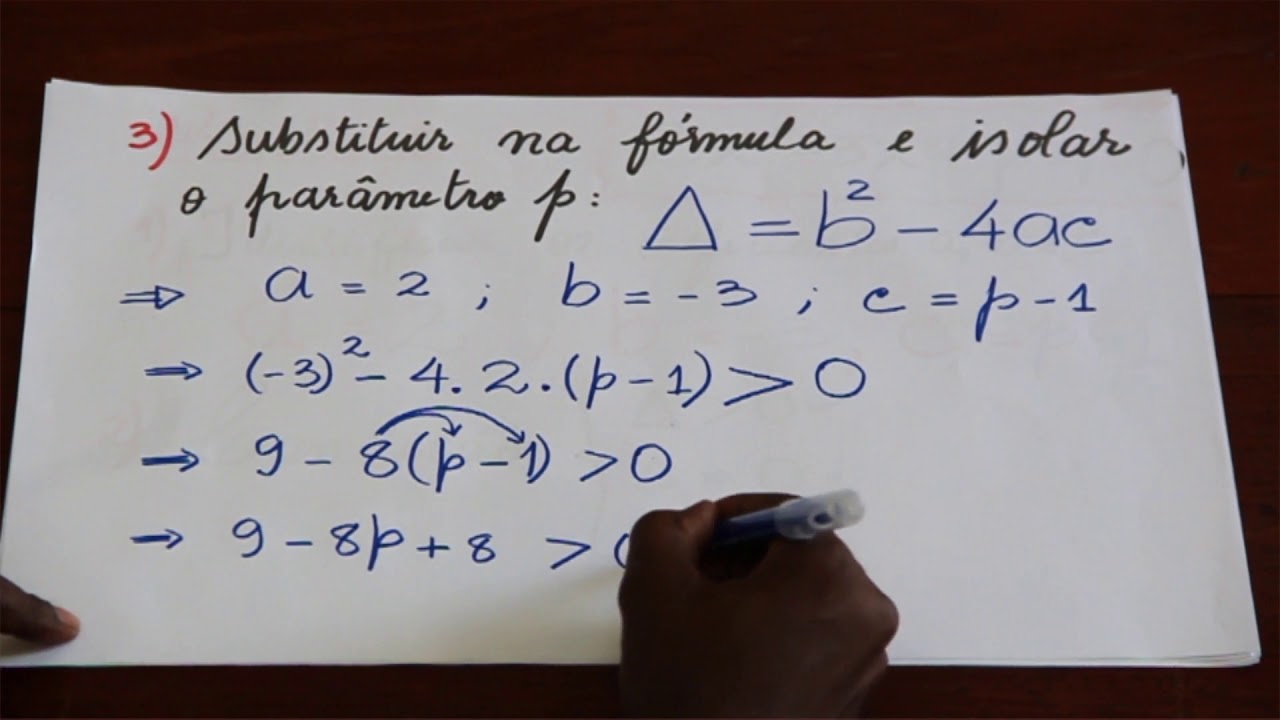 3) Substituir na fórmula e isolar
o parâmetro p: Δ = b² - 4ac
⇒ a = 2 ; b = -3 ; c = p - 1
⇒ (-3)² - 4 . 2 . (p - 1) > 0
⇒ 9 - 8(p - 1) > 0
⇒ 9 - 8p + 8 >